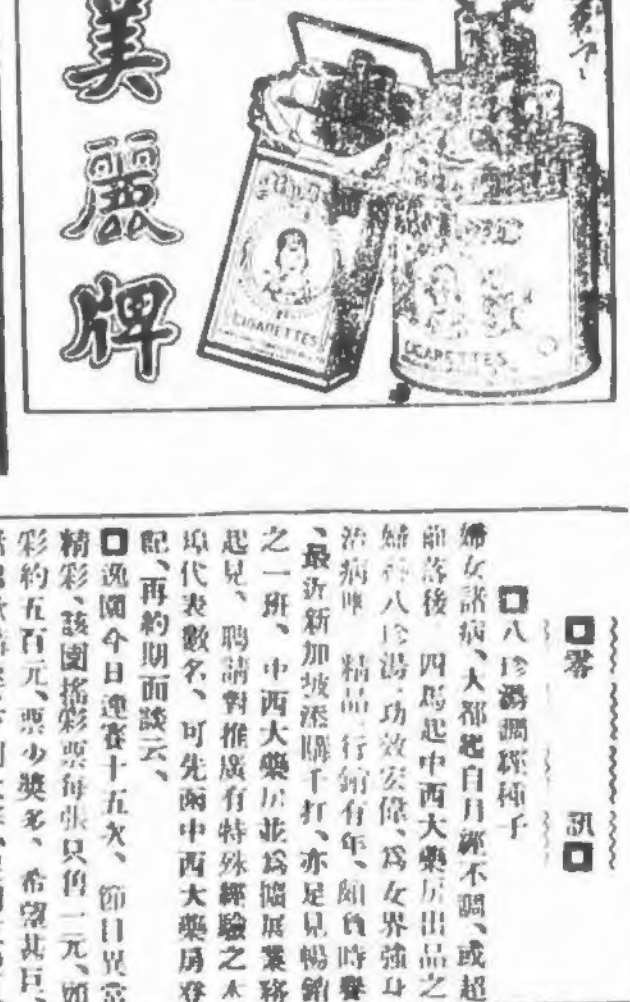 美麗牌
CIGARETTES
CIGARETTES
零訊
八珍湯調經種子
婦女諸病、大都起自月經不調、或超
前落後、四馬起中西大藥房出品之
婦科八珍湯、功效宏偉、爲女界強身
治病唯一精品、行銷有年、頗負時譽
、最近新加坡添購千打、亦足見暢銷
之一班、中西大藥房並爲擴展業務
起見、聘請對推廣有特殊經驗之本
埠代表數名、可先函中西大藥房登
記、再約期面談云、
逸園今日連賽十五次、節目異常
精彩、該園搖彩票每張只售一元、頭
彩約五百元、票少獎多、希望甚巨、